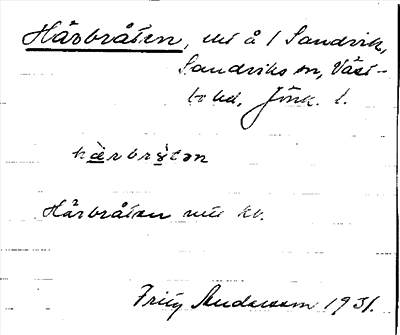 Hårbråten, utt å 1 Sandvik,
Sandviks sn, Väst-
bo hd, Jönk. l.
hårbråten
Hårbråten utt kv.
Fritz Andersson 1931.